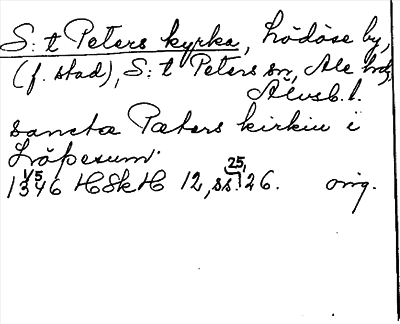 S:t Peters kyrka, Lödöse by,
(f. stad), S:t Peters sn, Ale hrd,
Älvsb. l.
sancta Pæters kirkiu i
Löþesum.
1346 1/5 HSkH 12, ss. 25, 126. orig.